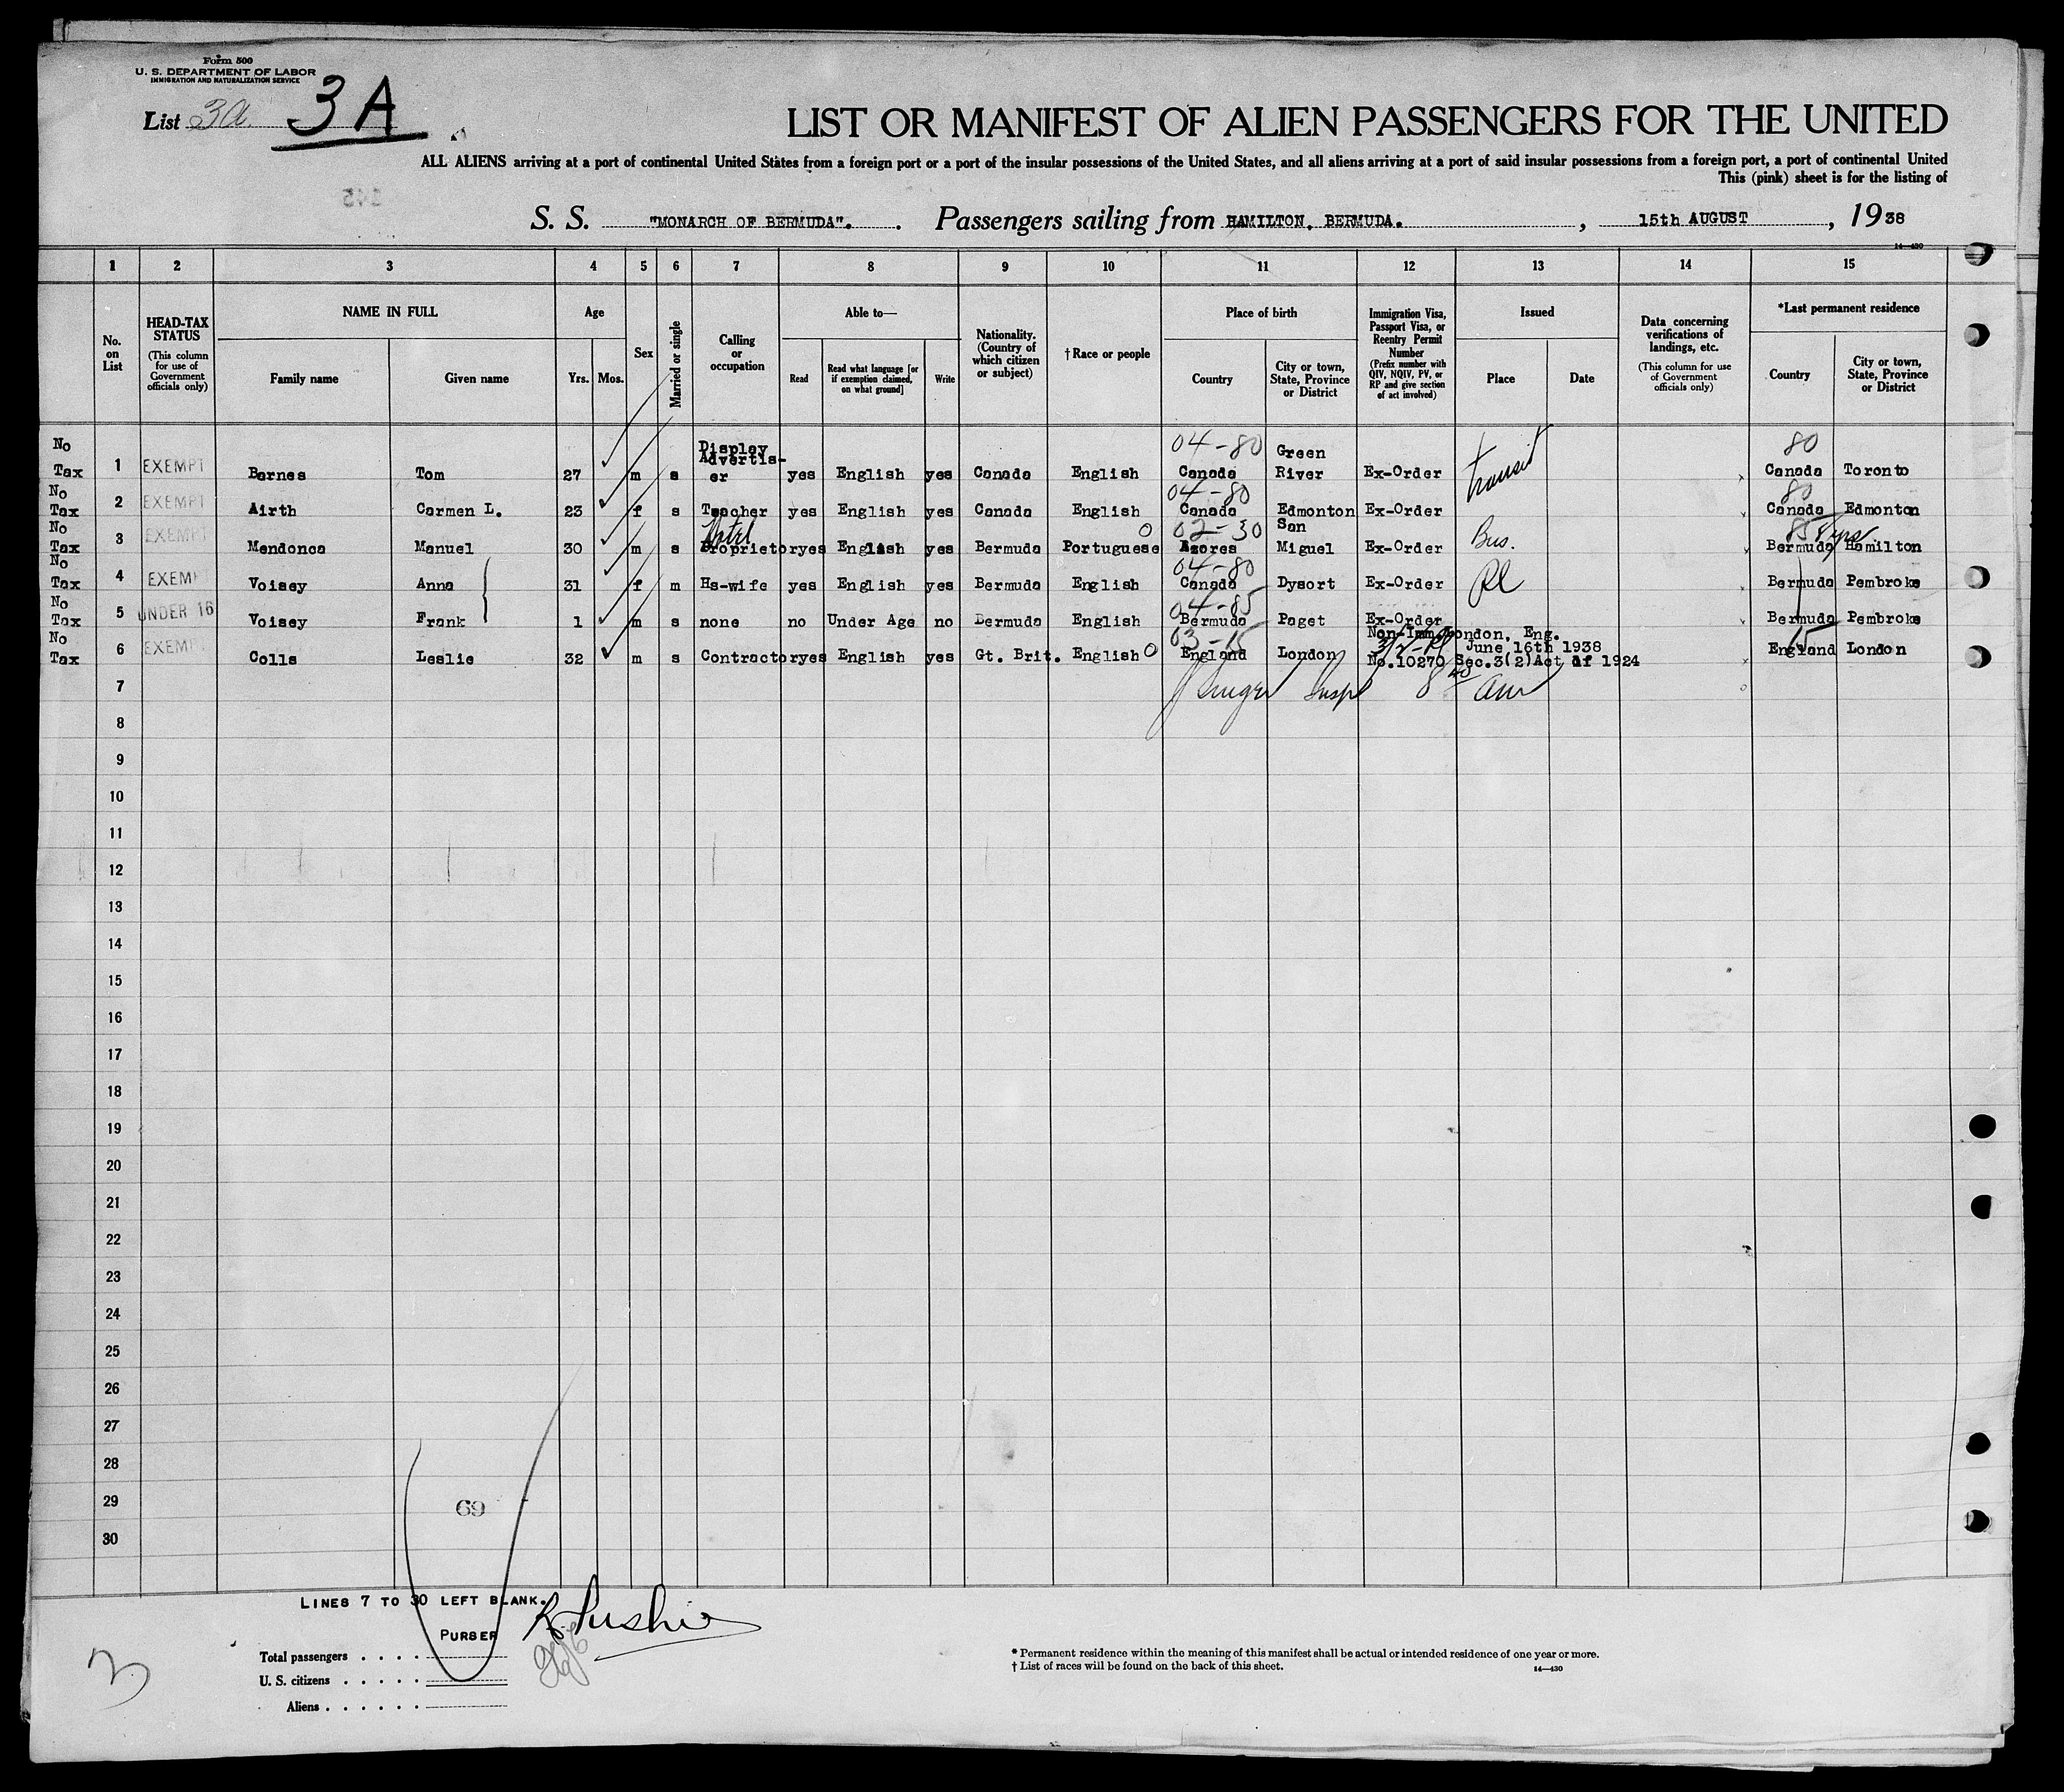 Form 500
U. S. DEPARTMENT OF LABOR
IMMIGRATION AND NATURALIZATION SERVICE
List 3a 3A
LIST OR MANIFEST OF ALIEN PASSENGERS FOR THE UNITED
ALL ALIENS arriving at a port of continental United States from a foreign port or a port of the insular possessions of the United States, and all aliens arriving at a port of said insular possessions from a foreign port, a port of continental United
This (pink) sheet is for the listing of
S. S. "MONARCH OF BERMUDA". Passengers sailing from HAMILTON, BERMUDA. , 15th AUGUST , 1938
14—430
1 2 3 4 5 6 7 8 9 10 11 12 13 14 15
No. on List
HEAD-TAX STATUS (This column for use of Government officials only)
NAME IN FULL
Family name Given name
Age
Yrs. Mos.
Sex
Married or single
Calling or occupation
Able to—
Read
Read what language [or if exemption claimed, on what ground]
Write
Nationality. (Country of which citizen or subject)
†Race or people
Place of birth
Country
City or town, State, Province or District
Immigration Visa, Passport Visa, or Reentry Permit Number (Prefix number with QIV, NQIV, PV, or RP and give section of act involved)
Issued
Place Date
Data concerning verifications of landings, etc. (This column for use of Government officials only)
*Last permanent residence
Country
City or town, State, Province or District
No Tax 1 EXEMPT Barnes Tom 27 m s Display Advertis-er yes English yes Canada English 04-80 Canada Green River Ex-Order transit 80 Canada Toronto
No Tax 2 EXEMPT Airth Carmen L. 23 f s Teacher yes English yes Canada English 04-80 Canada Edmonton Ex-Order 80 Canada Edmonton
No Tax 3 EXEMPT Mendonca Manuel 30 m s Hotel Proprietor yes English yes Bermuda Portuguese 02-30 Azores San Miguel Ex-Order Bus. 85 8 yrs Bermuda Hamilton
No Tax 4 EXEMPT Voisey Anna 31 f m Hs-wife yes English yes Bermuda English 04-80 Canada Dysort Ex-Order Pl Bermuda Pembroke
No Tax 5 UNDER 16 Voisey Frank 1 m s none no Under Age no Bermuda English 04-85 Bermuda Paget Ex-Order Bermuda Pembroke
No Tax 6 EXEMPT Colls Leslie 32 m s Contractor yes English yes Gt. Brit. English 03-15 England London Non-Imm London, Eng. 3/2-Pl June 16th 1938 No.10270 Sec.3(2)Act of 1924 15 England London
7
8
9
10
11
12
13
14
15
16
17
18
19
20
21
22
23
24
25
26
27
28
29
30
69
LINES 7 TO 30 LEFT BLANK.
PURSER
Total passengers
U. S. citizens
Aliens
3
* Permanent residence within the meaning of this manifest shall be actual or intended residence of one year or more.
† List of races will be found on the back of this sheet.
14—430